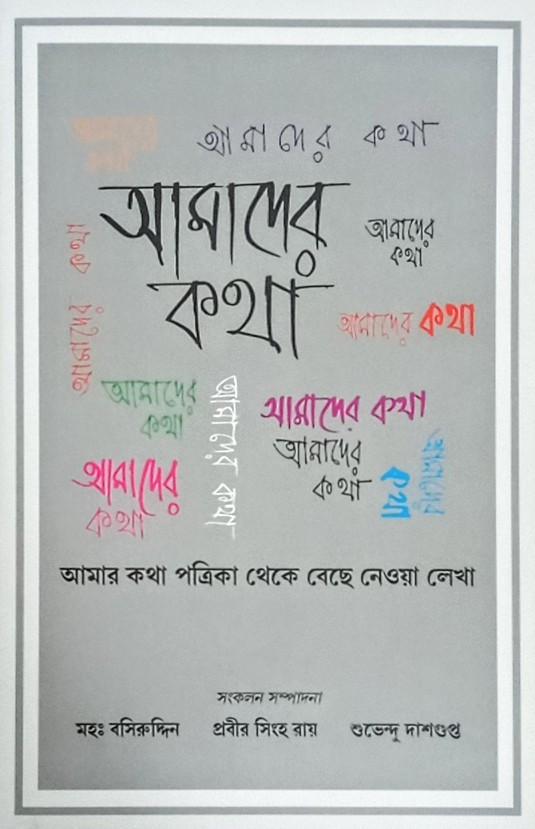 আমাদের
কথা
আমাদের কথা
আমাদের
কথা
আমাদের
কথা
আমাদের কথা
আমাদের কথা
আমাদের
কথা
আমাদের কথা
আমাদের কথা
আমাদের
কথা
আমাদের
কথা
আমাদের
কথা
আমার কথা পত্রিকা থেকে বেছে নেওয়া লেখা
সংকলন সম্পাদনা
মহঃ বসিরুদ্দিন প্রবীর সিংহ রায় শুভেন্দু দাশগুপ্ত